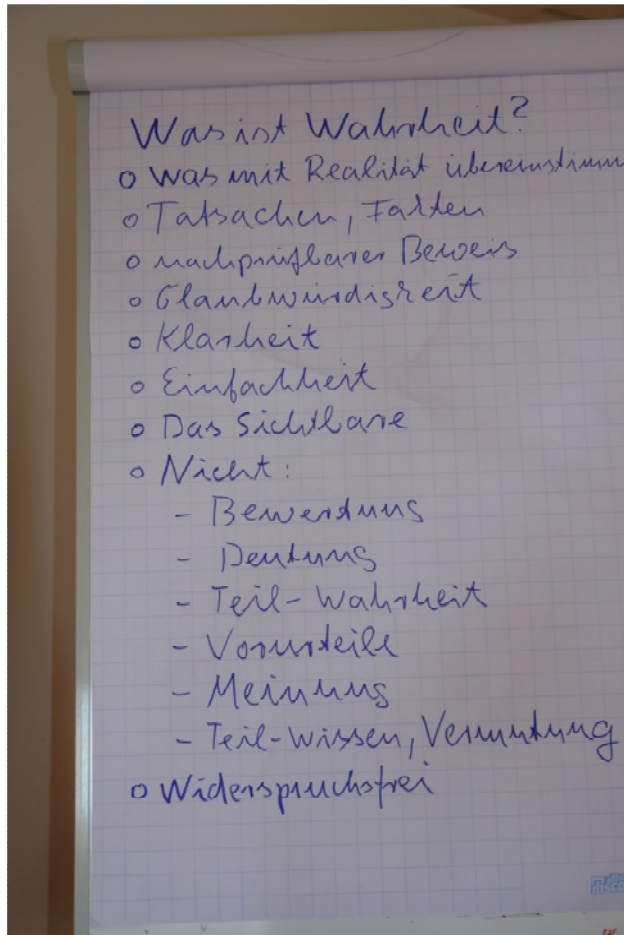 Was ist Wahrheit?
o Was mit Realität übereinstimm
o Tatsachen, Fakten
o nachprüfbarer Beweis
o Glaubwürdigkeit
o Klarheit
o Einfachheit
o Das Sichtbare
o Nicht:
- Bewertung
- Deutung
- Teil-Wahrheit
- Vorurteile
- Meinung
- Teil-Wissen, Vermutung
o Widerspruchsfrei